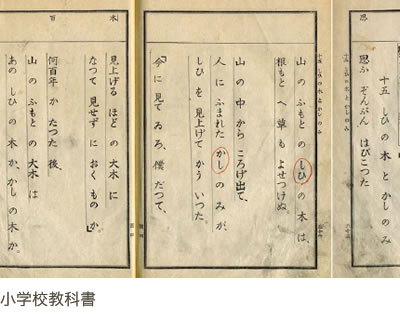 十五 しひの木とかしのみ
思ふぞんぶんはびこつた
山のふもとのしひの木は、
根もとへ草もよせつけぬ。
山の中からころげ出て、
人にふまれたかしのみが、
しひを見上げてかういつた。
「今に見てゐろ、僕だつて、
見上げるほどの大木に
なつて見せずにおくものか。」
何百年かたつた後、
山のふもとの大木は
あのしひの木か、かしの木か。
小学校教科書